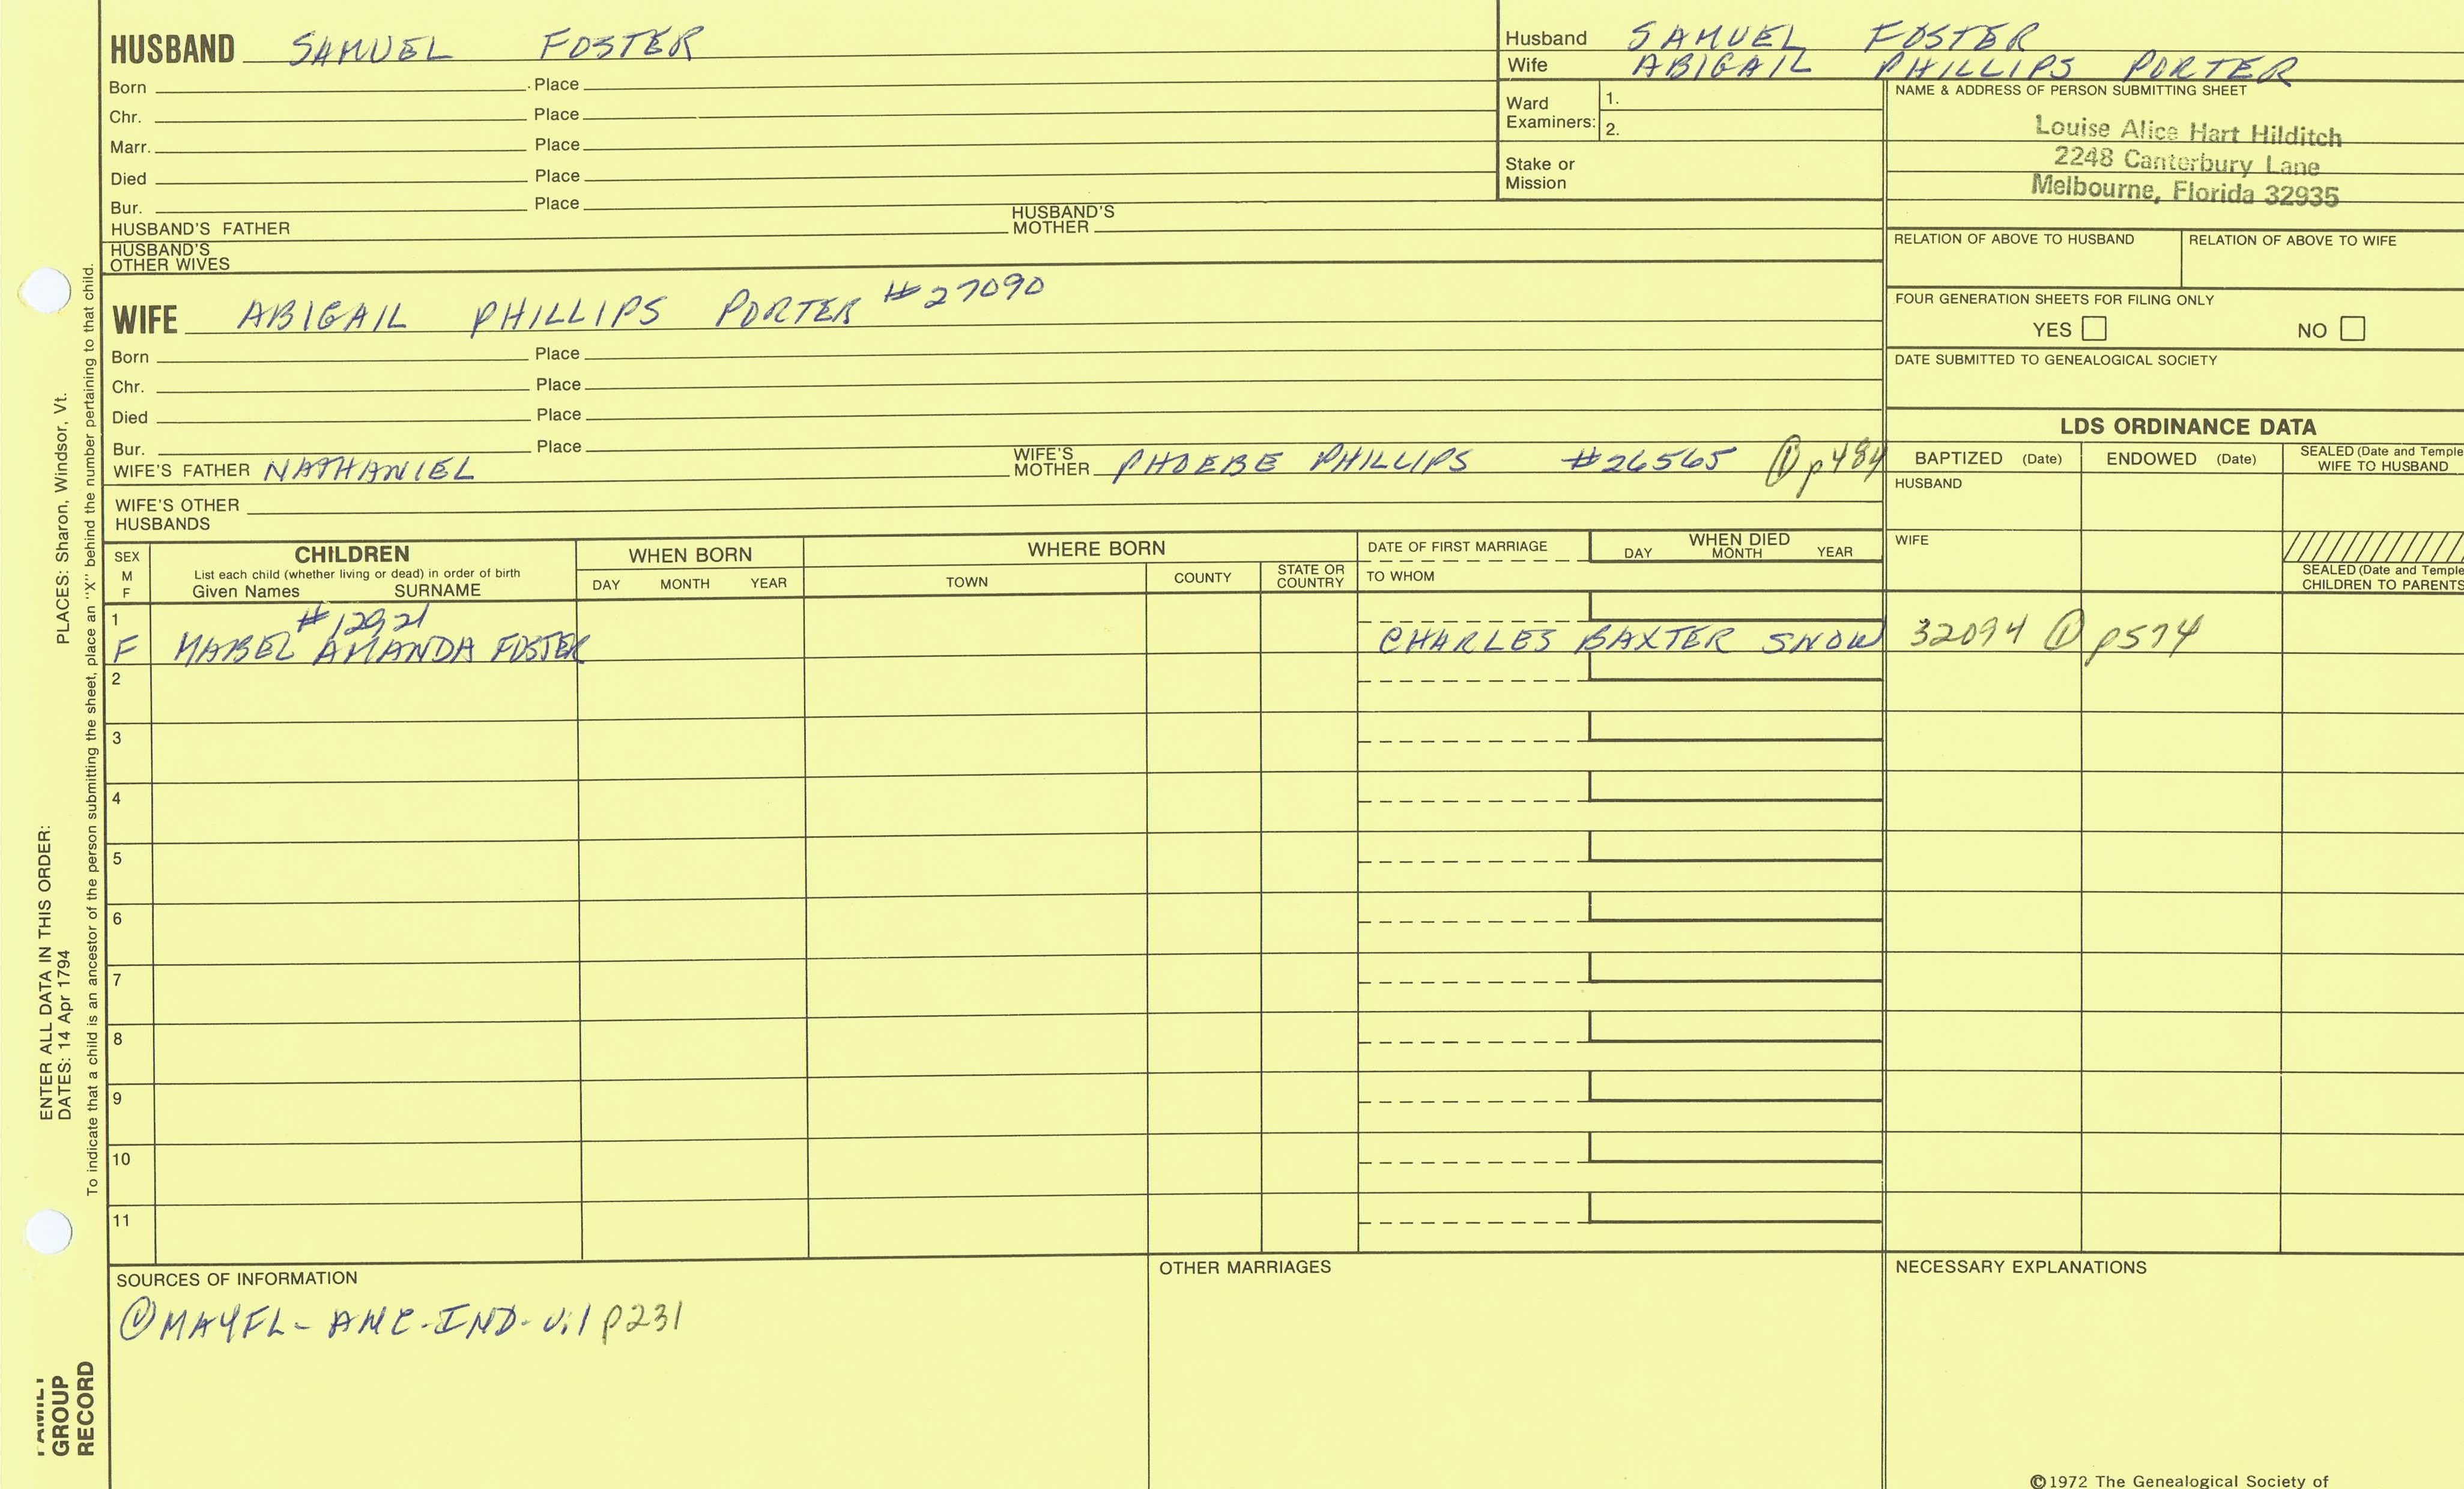 HUSBAND SAMUEL FOSTER
Born Place
Chr. Place
Marr. Place
Died Place
Bur. Place
HUSBAND'S FATHER HUSBAND'S MOTHER
HUSBAND'S OTHER WIVES
WIFE ABIGAIL PHILLIPS PORTER #27090
Born Place
Chr. Place
Died Place
Bur. Place
WIFE'S FATHER NATHANIEL WIFE'S MOTHER PHOEBE PHILLIPS #26565 ① p484
WIFE'S OTHER HUSBANDS
Husband SAMUEL FOSTER
Wife ABIGAIL PHILLIPS PORTER
Ward Examiners: 1.
2.
Stake or Mission
NAME & ADDRESS OF PERSON SUBMITTING SHEET
Louise Alice Hart Hilditch
2248 Canterbury Lane
Melbourne, Florida 32935
RELATION OF ABOVE TO HUSBAND RELATION OF ABOVE TO WIFE
FOUR GENERATION SHEETS FOR FILING ONLY
YES NO
DATE SUBMITTED TO GENEALOGICAL SOCIETY
LDS ORDINANCE DATA
BAPTIZED (Date) ENDOWED (Date) SEALED (Date and Temple WIFE TO HUSBAND
HUSBAND
WIFE
SEALED (Date and Temple
CHILDREN TO PARENTS
SEX M F CHILDREN
List each child (whether living or dead) in order of birth
Given Names SURNAME
WHEN BORN
DAY MONTH YEAR
WHERE BORN
TOWN COUNTY STATE OR COUNTRY
DATE OF FIRST MARRIAGE
TO WHOM
WHEN DIED
DAY MONTH YEAR
1 #12921
F MABEL AMANDA FOSTER CHARLES BAXTER SNOW 32094 ① p574
2
3
4
5
6
7
8
9
10
11
SOURCES OF INFORMATION
① MAYFL-AMC-IND-v.1 p231
OTHER MARRIAGES
NECESSARY EXPLANATIONS
©1972 The Genealogical Society of
ENTER ALL DATA IN THIS ORDER:
DATES: 14 Apr 1794 PLACES: Sharon, Windsor, Vt.
To indicate that a child is an ancestor of the person submitting the sheet, place an "X" behind the number pertaining to that child.
FAMILY
GROUP
RECORD